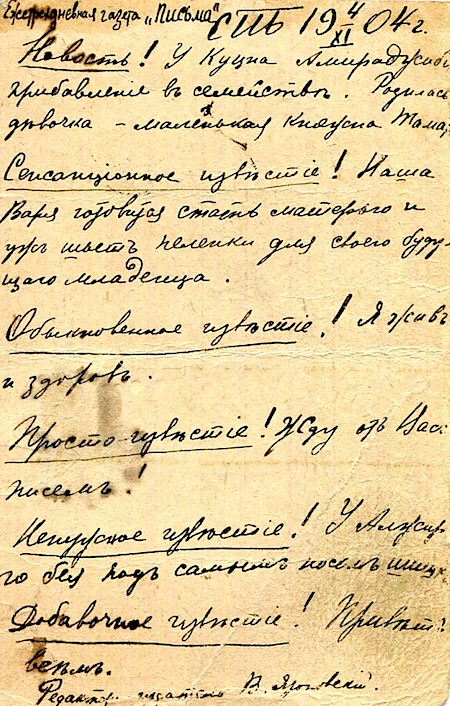 Ежедневная газета „Письма" СПБ 19 4/XI 04 г.
Новость! У Куцна
прибавленіе въ семействѣ. Родилась
дѣвочка – маленькая Княжна Тама
Сенсаціонное извѣстіе! Наша
Варя готовится стать матерью и
ужъ шьетъ пеленки для своего буду-
щаго младенца.
Обыкновенное извѣстіе! Я живъ
и здоровъ.
Просто извѣстіе! Жду отъ Васъ
писемъ!
извѣстіе! У
го бея подъ самымъ носомъ
Добавочное извѣстіе! Привѣтъ
всѣмъ.
Редакторъ издатель В.